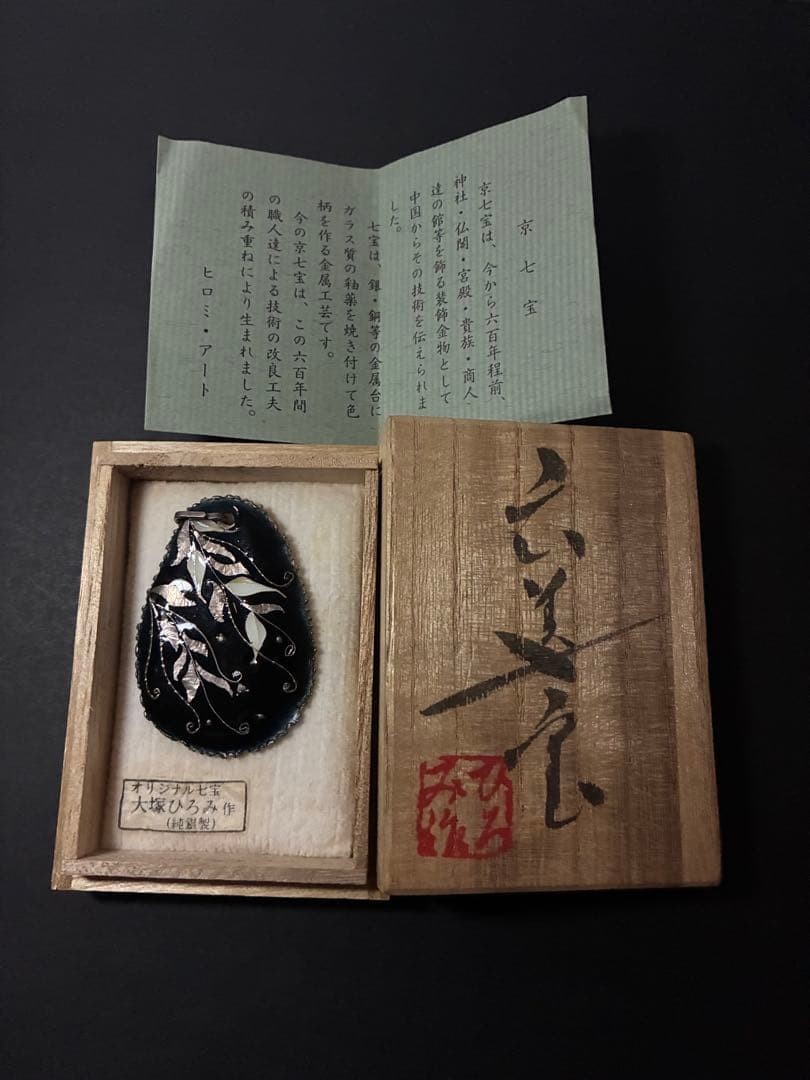 京七宝
京七宝は、今から六百年程前、
神社・仏閣・宮殿・貴族・商人
達の館等を飾る装飾金物として
中国からその技術を伝えられま
した。
七宝は、銀・銅等の金属台に
ガラス質の釉薬を焼き付けて色
柄を作る金属工芸です。
今の京七宝は、この六百年間
の職人達による技術の改良工夫
の積み重ねにより生まれました。
ヒロミ・アート
ひろ
み作
オリジナル七宝
大塚ひろみ作
(純銀製)